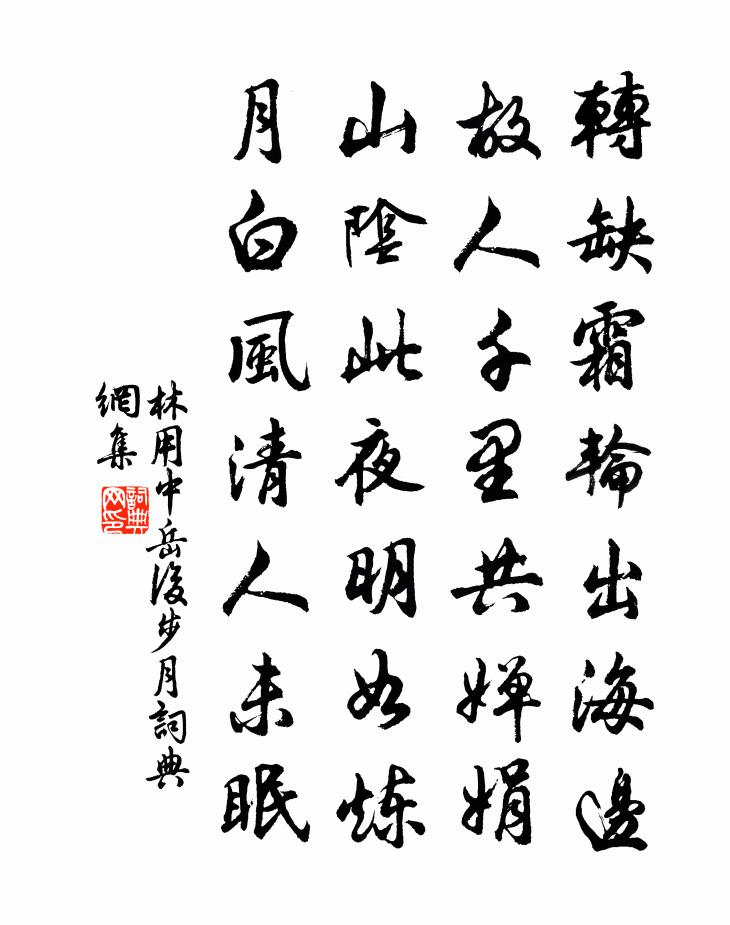 轉缺霜輪出海邊
故人千里共嬋娟
山陰此夜明如炼
月白風清人未眠
林用中岳後步月詞典
網集
詞典網印